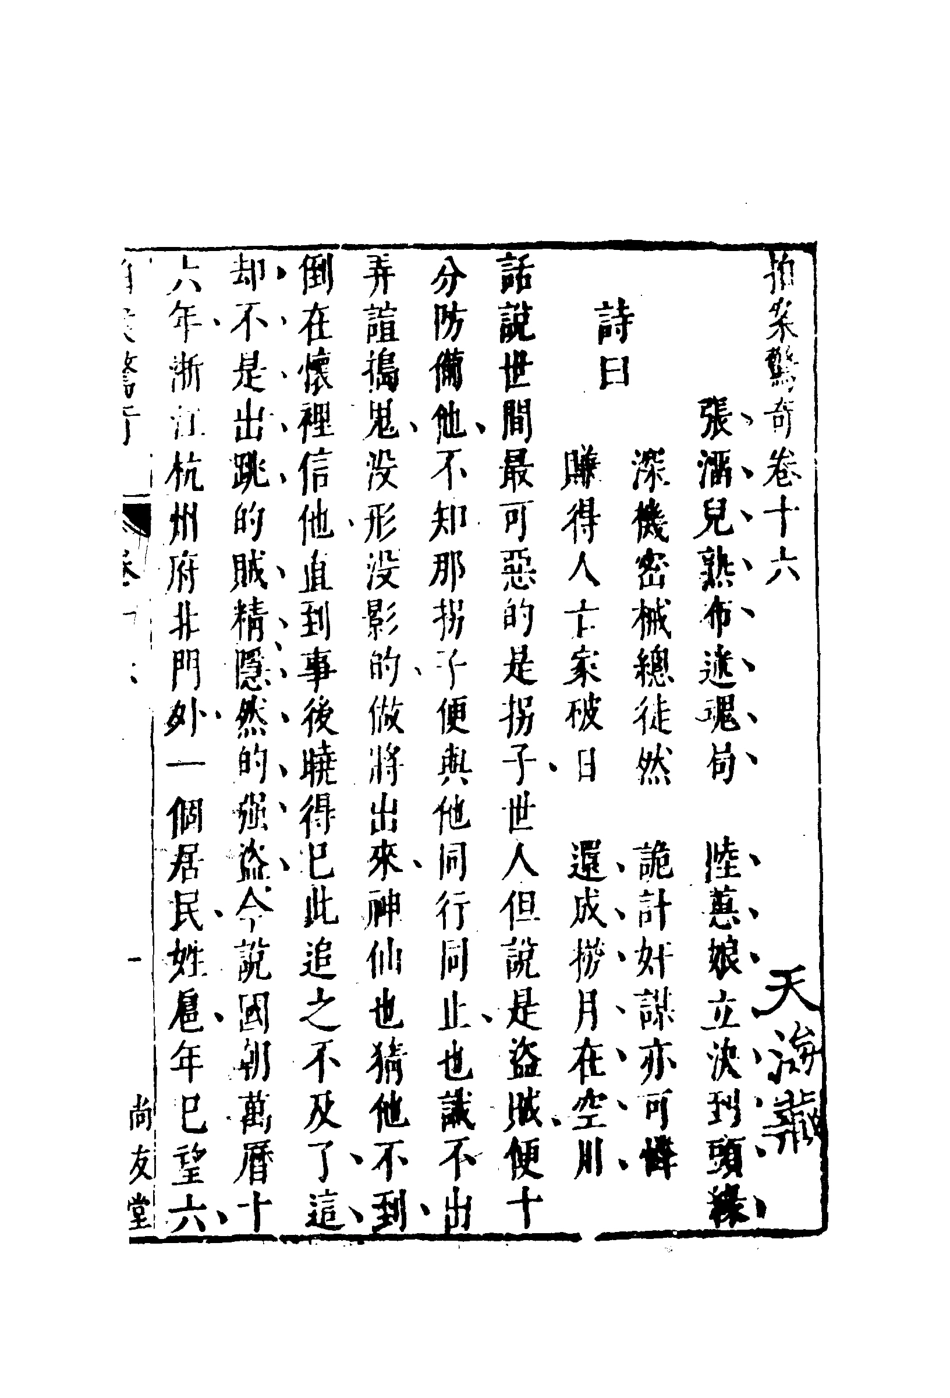 拍案驚奇卷十六
天海藏
張溜兒熟布迷魂局　陸蕙娘立決到頭緣
詩曰
深機密械總徒然　詭計奸謀亦可憐
賺得人亡家破日　還成撈月在空川
話說世間最可惡的是拐子世人但說是盜賊便十
分防備他不知那拐子便與他同行同止也識不出
弄諠搗鬼沒形沒影的做將出來神仙也猜他不到
倒在懷裡信他直到事後曉得已此追之不及了這
却不是出跳的賊精隱然的強盜今說國朝萬曆十
六年浙江杭州府北門外一個居民姓扈年已望六
尚友堂
一